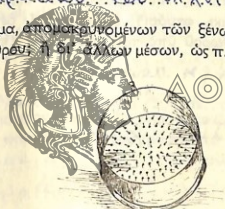 μα, ἀπομακρυνομένων τῶν ξένω
ρου; ἢ δι' ἄλλων μέσων, ὡς π.